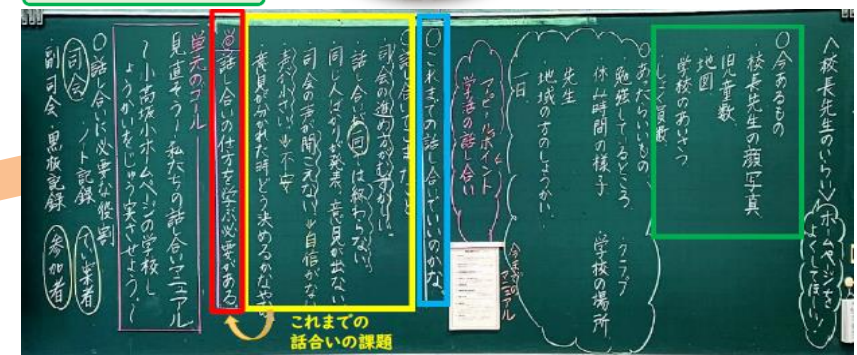 〈校長先生のいらい〉
ホームページをよくしてほしい！
○今あるもの
・校長先生の顔写真
・旧児童数
・地図
・学校のあいさつ
員数
○あったらいいもの
勉強しているところ
・休み時間の様子
・先生
・地域の方のしょうかい
・一日
クラブ
学校の場所
アピールポイント
学活の話し合い
今までのマニュアル
○これまでの話し合いでいいのかな。
・司会の進め方がむずかしい
・話し合いが一回では終わらない。
・同じ人ばかりが発表、意見が出ない
・司会の声が聞こえない→自信がない
声が小さい→不安
・意見が分かれた時どう決めるかなやむ
◎話し合いの仕方を学ぶ必要がある。
単元のゴール
見直そう！私たちの話合いマニュアル
〜小高坂小ホームページの学校しょうかいをじゅう実させよう！〜
○話し合いに必要な役割
司会
ノート記録
てい案者
副司会・黒板記録
参加者
これまでの
話合いの課題